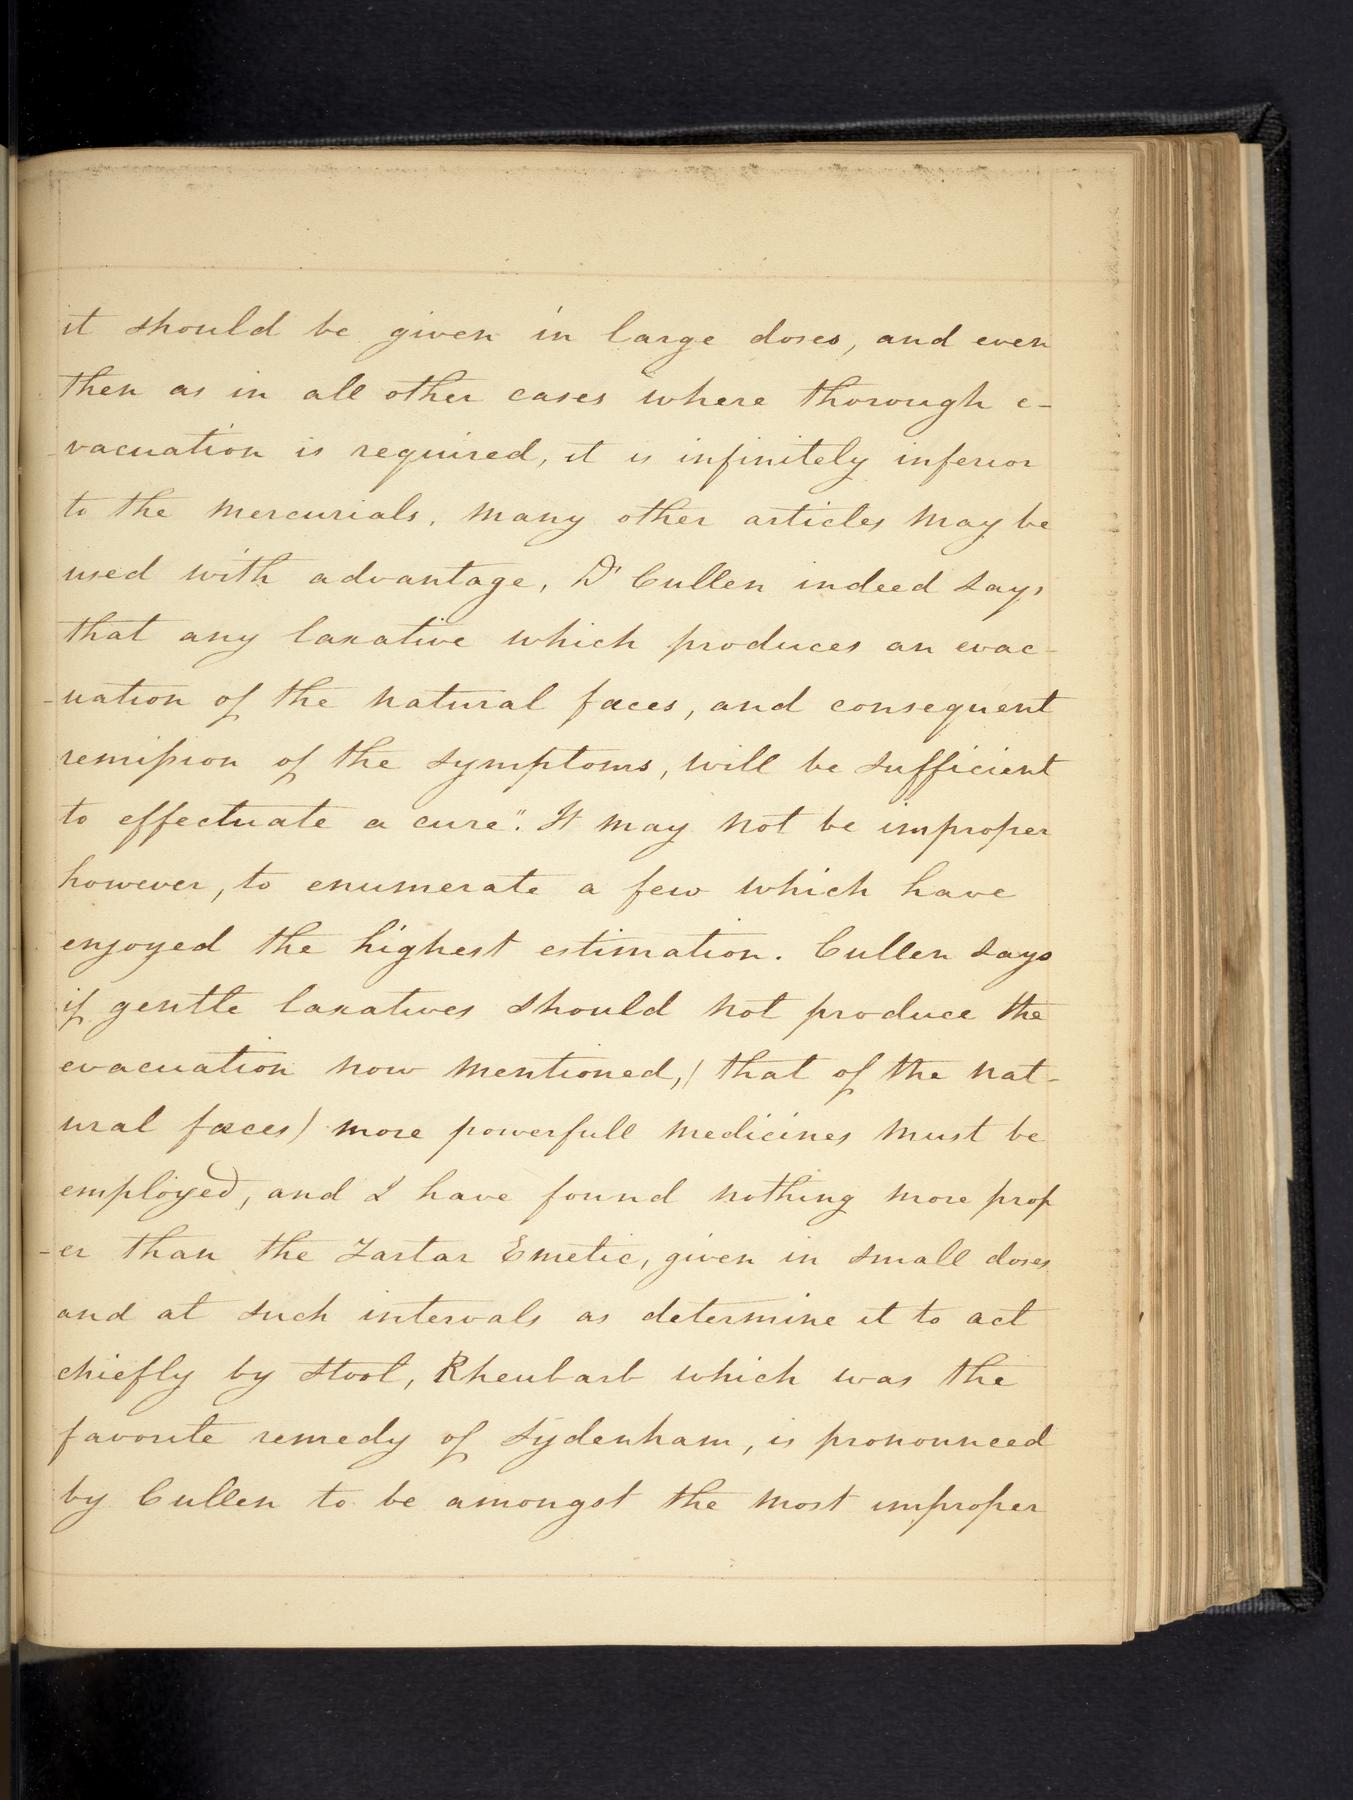 it should be given in large doses, and even
then as in all other cases where thorough e-
vacuation is required, it is infinitely inferior
to the mercurials, many other articles may be
used with advantage, Dr Cullen indeed says
that any laxative which produces an evac-
-uation of the natural fæces, and consequent
remission of the symptoms, will be sufficient
to effectuate a cure". It may not be improper
however, to enumerate a few which have
enjoyed the highest estimation. Cullen says
if gentle laxatives should not produce the
evacuation now mentioned, ( that of the nat-
ural fæces) more powerfull medicines must be
employed, and I have found nothing more prop
-er than the Tartar Emetic, given in small doses
and at such intervals as determine it to act
chiefly by stool, Rheubarb which was the
favorite remedy of Sydenham, is pronounced
by Cullen to be amongst the most improper